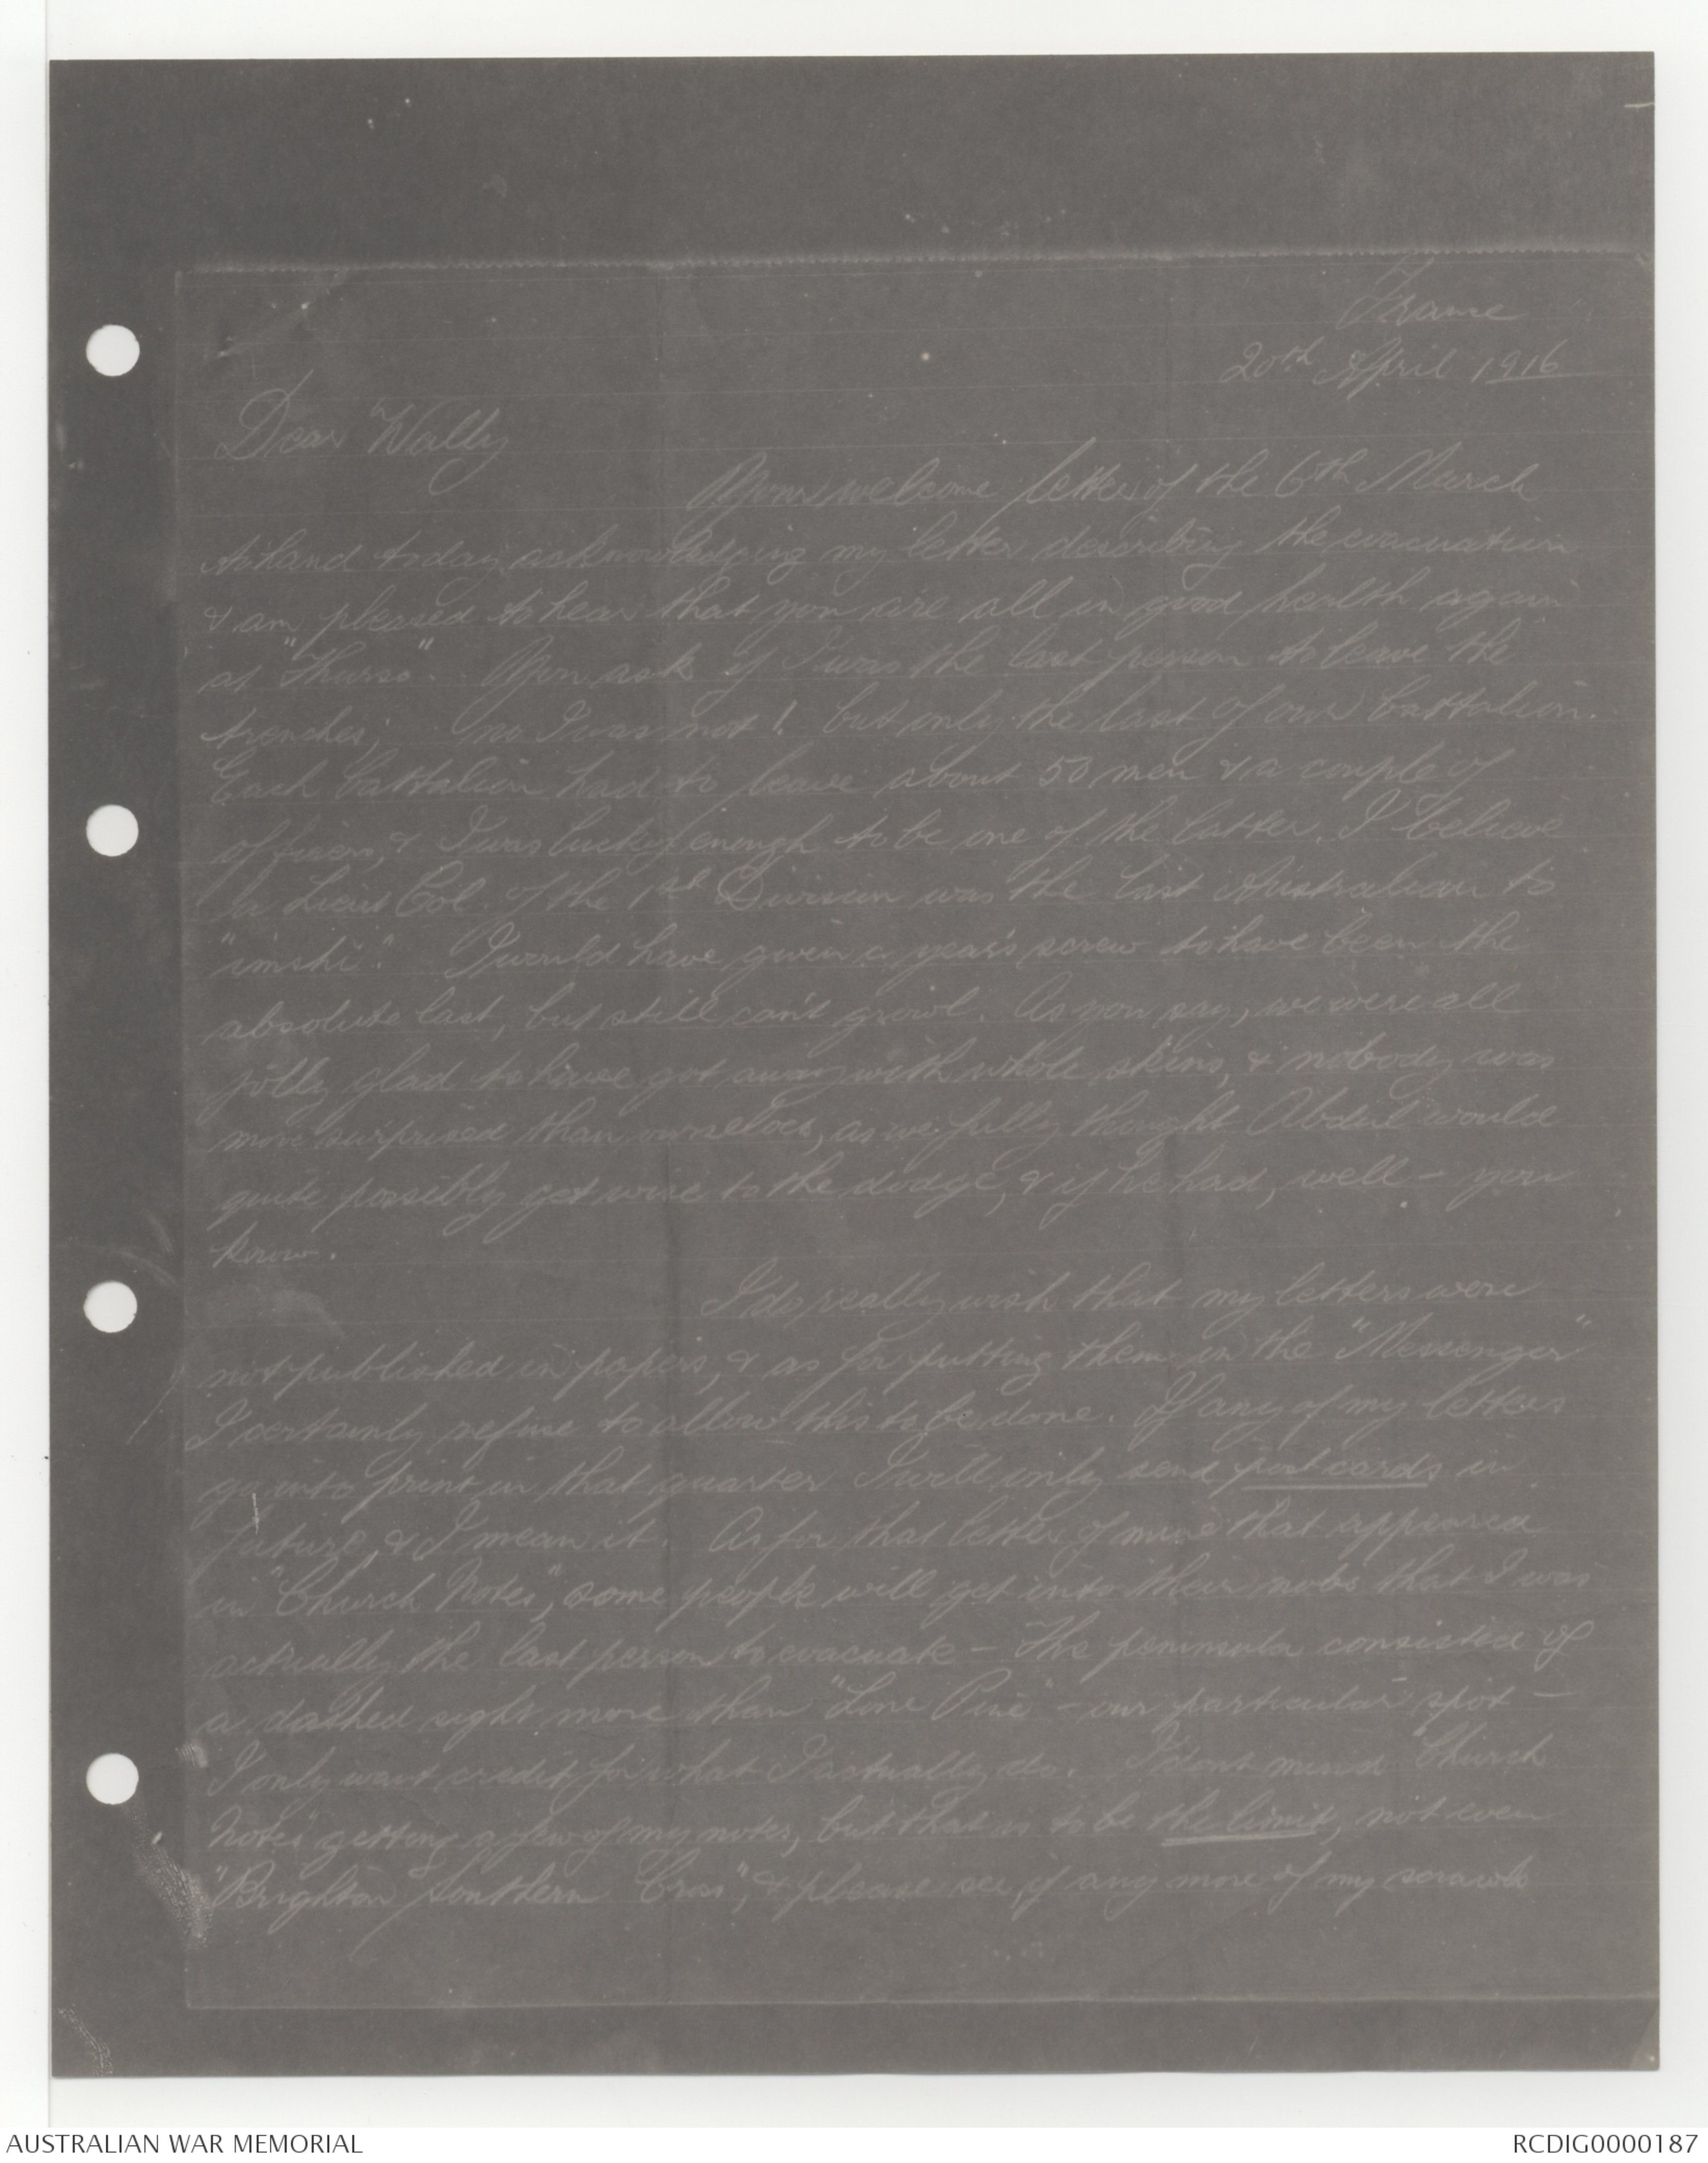 France
20th April 1916
Dear Wally
Your welcome letter of the 6th March
to hand today acknowledging my letter describing the evacuation
& am pleased to hear that you are all in good health again
at "Thurso". You ask if I was the last person to leave the
trenches; no I was not! but only the last of our battalion.
Each battalion had to leave about 50 men & a couple of
officers, & I was lucky enough to be one of the latter. I believe
a Lieut Col. of the 1st Division was the last Australian to
"imshi". I would have given a year's screw to have been the
absolute last, but still can't growl. As you say, we were all
jolly glad to have got away with whole skins, & nobody was
more surprised than ourselves, as we fully thought Abdul would
quite possibly get wise to the dodge, & if he had, well – you
know.
I do really wish that my letters were
not published in papers, & as for putting them in the "Messenger"
I certainly refuse to allow this to be done. If any of my letters
go into print in that quarter I will only send post cards in
future, & I mean it. As for that letter of mine that appeared
in "Church Notes", some people will get into their nobs that I was
actually the last person to evacuate – The peninsula consisted of
a dashed sight more than "Lone Pine" – our particular spot –
I only want credit for what I actually do. I don't mind "Church
Notes" getting a few of my notes, but that is to be the limit, not even
"Brighton Southern Cross", & please see, if any more of my scrawls
AUSTRALIAN WAR MEMORIAL
RCDIG0000187